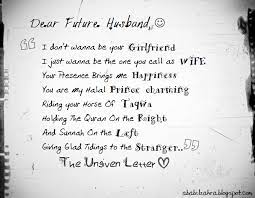 Dear Future Husband,
"I don't wanna be your Girlfriend
I just wanna be the one you call as WIFE
Your Presence Brings me Happiness
You are my Halal Prince charming
Riding your Horse Of Taqwa
Holding The Quran On the Right
And Sunnah On the Left
Giving Glad Tidings to the Stranger.."
The Unsven Letter
ababilzahra.blogspot.com